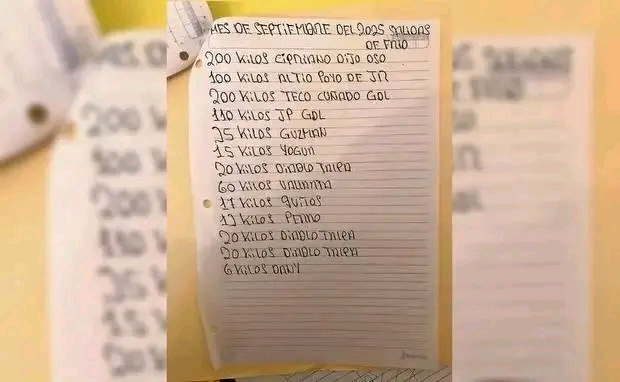 MES DE SEPTIEMBRE DEL 2025 SALIDAS
DE FRIO
200 KILOS CIPRIANO DIJO OSO
100 KILOS AL TIO POYO DE JR
200 KILOS TECO CUÑADO GDL
110 KILOS JP GDL
35 KILOS GUZMAN
15 KILOS YOGUR
20 KILOS DIABLO TALPA
60 KILOS
17 KILOS QUITOS
13 KILOS PERRO
20 KILOS DIABLO TALPA
20 KILOS DIABLO TALPA
6 KILOS DANY